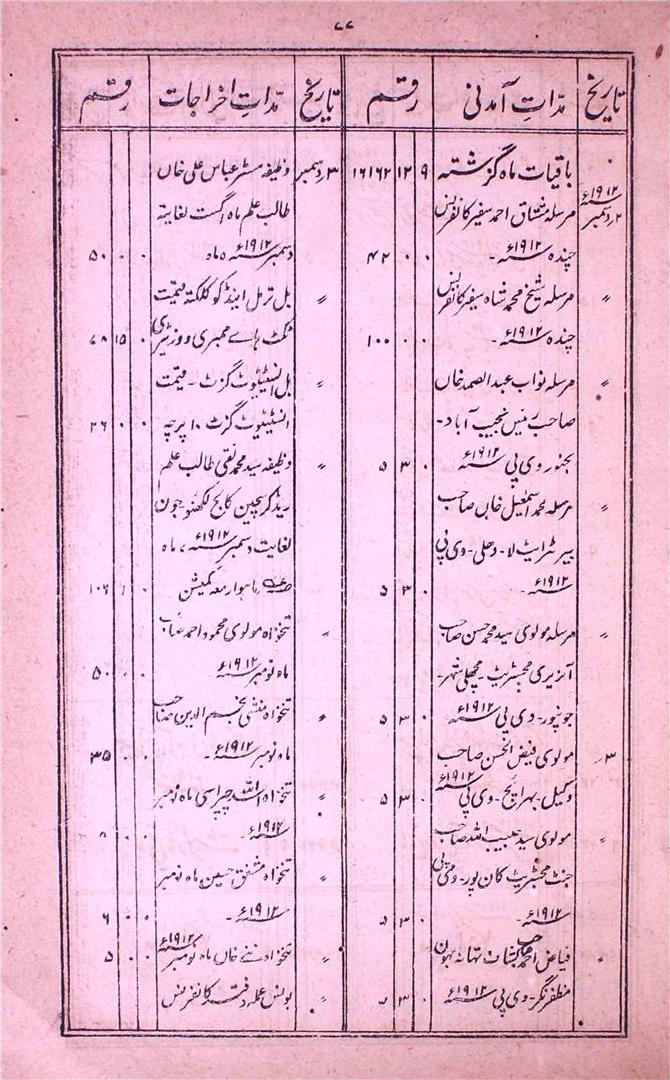 ۷۷
تاریخ مدّاتِ آمدنی رقم تاریخ مدّاتِ اخراجات رقم
۲ دسمبر ۱۹۱۲ء باقیات ماہ گزشتہ ۹ ۱۲ ۱۶۱۶۲
مرسلہ مشتاق احمد سفیر کانفرنس
چندہ ۱۹۱۲ء۔ ۰ ۰ ۴۲
〃 مرسلہ شیخ محمد شاہ سفیر کانفرنس
چندہ ۱۹۱۲ء۔ ۰ ۰ ۱۰۰
〃 مرسلہ نواب عبدالصمد خاں
صاحب رئیس نجیب آباد۔
بجنور وی پی ۱۹۱۲ء ۰ ۳ ۵
〃 مرسلہ محمد اسمٰعیل خاں صاحب
بیرسٹر ایٹ لا۔ دھلی۔ وی پی
۱۹۱۲ء۔ ۰ ۳ ۵
〃 مرسلہ مولوی سید محمد حسن صاحب
آنریری مجسٹریٹ۔ مچھلی شہر۔
جونپور۔ وی پی ۱۹۱۲ء ۰ ۳ ۵
۳ مولوی فیض الحسن صاحب
وکیل۔ بہرایچ۔ وی پی ۱۹۱۲ء ۰ ۳ ۵
〃 مولوی سید حبیب اللہ صاحب
جنٹ مجسٹریٹ کان پور۔ وی پی
۱۹۱۲ء۔ ۰ ۳ ۵
〃 فیاض احمد صاحب تھانہ بھون
مظفرنگر۔ وی پی ۱۹۱۲ء ۰ ۳ ۵
۳ دسمبر وظیفہ مسٹر عباس علی خاں
طالب علم ماہ اگست لغایتہ
دسمبر ۱۹۱۲ء ۵ ماہ ۰ ۰ ۵۰
〃 بل ترمل اینڈ کو کلکتہ قیمت
ٹکٹ ہاے ممبری و وزیٹری ۰ ۱۵ ۶۸
〃 بل انسٹیٹیوٹ گزٹ۔ قیمت
انسٹیٹیوٹ گزٹ ۱۰ پرچہ ۰ ۰ ۲۶
〃 وظیفہ سید محمد نقی طالب علم
ریڈ کرسچین کالج لکھنؤ جون
لغایت دسمبر ۱۹۱۲ء، ۷ ماہ
ماہوار معہ کمیشن ۰ ۱ ۱۰۶
〃 تنخواہ مولوی محمود احمد صاحب
ماہ نومبر ۱۹۱۲ء۔ ۰ ۰ ۵۰
〃 تنخواہ منشی نجم الدین صاحب
ماہ نومبر ۱۹۱۲ء۔ ۰ ۰ ۳۵
〃 تنخواہ چپراسی ماہ نومبر
۱۹۱۲ء۔ ۰ ۰ ۸
〃 تنخواہ مشفق حسین ماہ نومبر
۱۹۱۲ء۔ ۰ ۰ ۶
〃 تنخواہ ننے خاں ماہ نومبر ۱۹۱۲ء ۰ ۰ ۵
〃 بونس عملہ دفتر کانفرنس